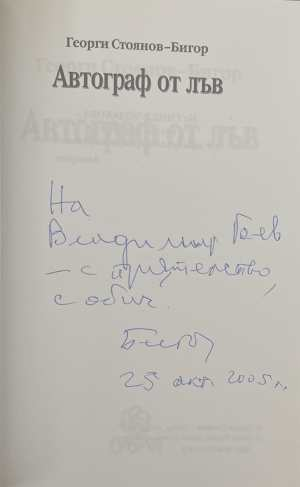 Георги Стоянов–Бигор
Автограф от лъв
На
Владимир Гаев
– с приятелство,
с обич.
Бигор
25 окт 2005 г.